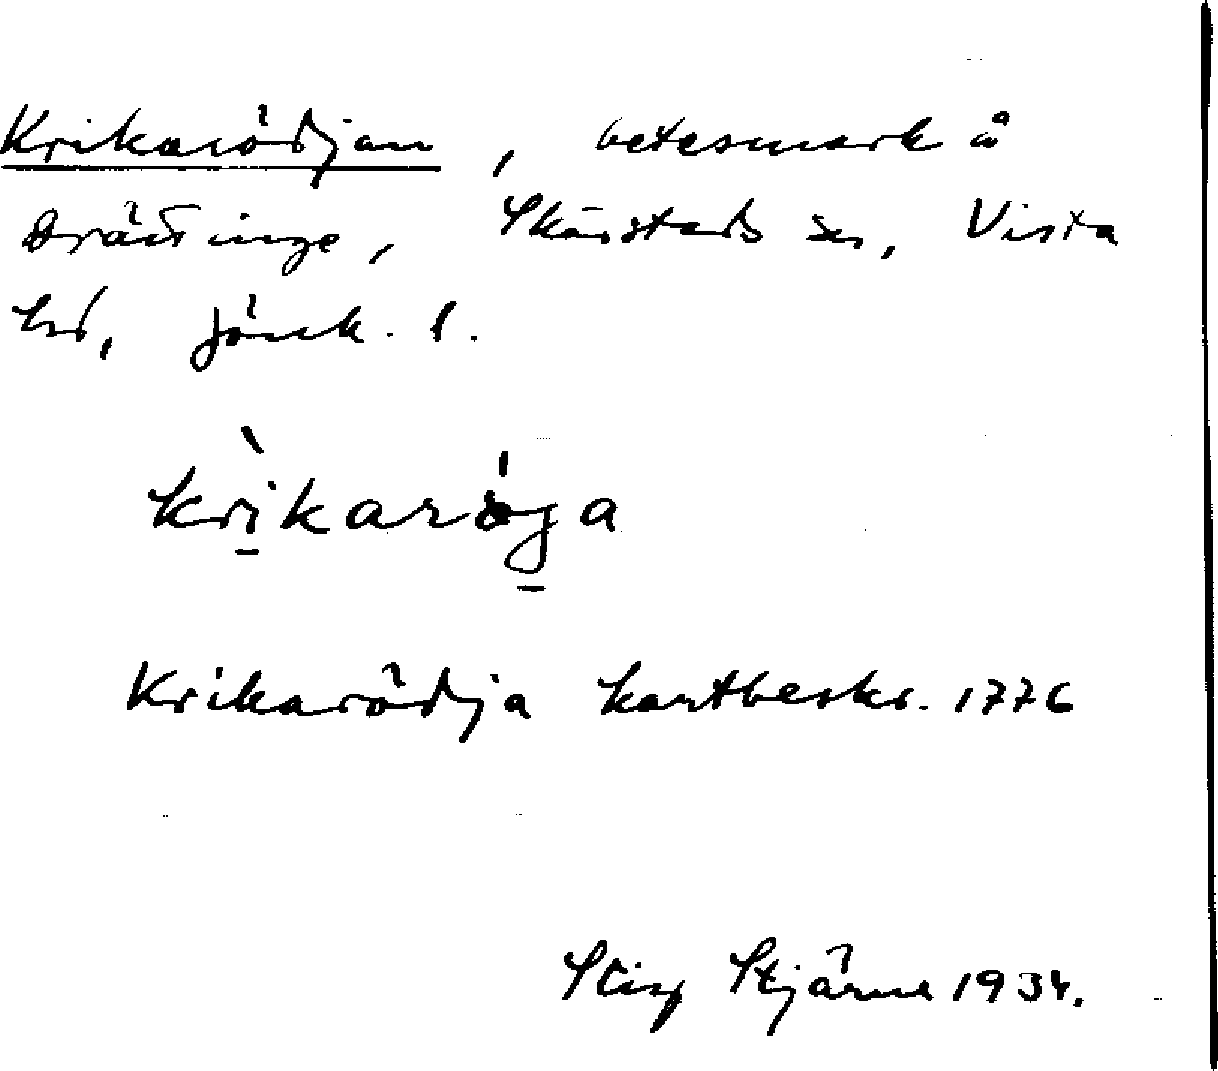 Krikarödjan, betesmark å
Drättinge, Skärstads sn, Vista
hd, Jönk. l.
krikaröja
Krikarödja kartbeskr. 1776
Stig Stjärne 1934.